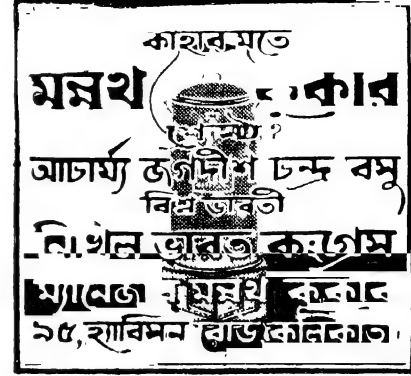 কাহার মতে
মন্নথ
শ্রেষ্ঠ ?
আচার্য্য জগদীশ চন্দ্র বসু
বিশ্ব ভারতী
নিখিল ভারত কংগ্রেস
ম্যানেজ মন্নথ
৯৫, হ্যারিসন রোড কলিকাতা